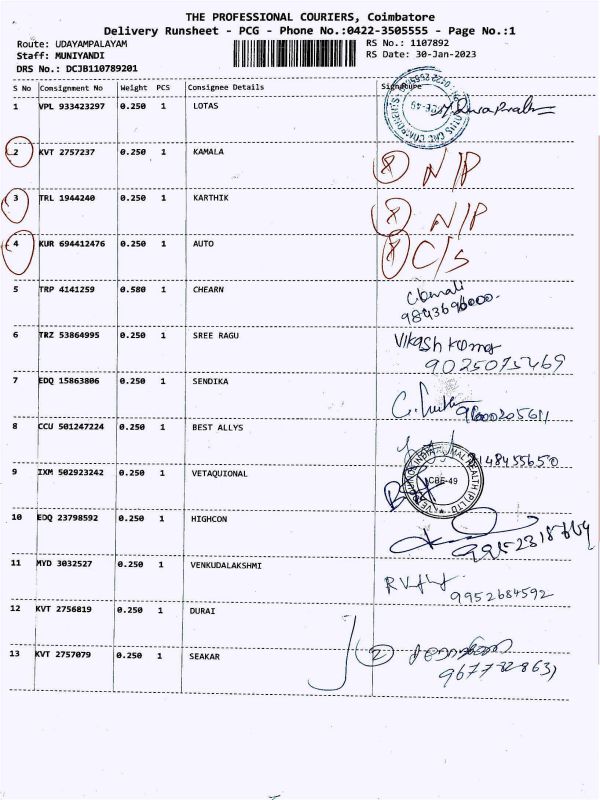 THE PROFESSIONAL COURIERS, Coimbatore
Delivery Runsheet - PCG - Phone No.:0422-3505555 - Page No.:1
Route: UDAYAMPALAYAM
Staff: MUNIYANDI
DRS No.: DCJB110789201
RS No.: 1107892
RS Date: 30-Jan-2023
S No Consignment No Weight PCS Consignee Details Signature
1 VPL 933423297 0.250 1 LOTAS
2 KVT 2757237 0.250 1 KAMALA N/P
3 TRL 1944240 0.250 1 KARTHIK N/P
4 KUR 694412476 0.250 1 AUTO C/S
5 TRP 4141259 0.580 1 CHEARN
9843696000
6 TRZ 53864995 0.250 1 SREE RAGU Vikash
9025075469
7 EDQ 15863806 0.250 1 SENDIKA 9600205611
8 CCU 501247224 0.250 1 BEST ALLYS
9 IXM 502923242 0.250 1 VETAQUIONAL CBE-49
10 EDQ 23798592 0.250 1 HIGHCON
11 MYD 3032527 0.250 1 VENKUDALAKSHMI
9952684592
12 KVT 2756819 0.250 1 DURAI
13 KVT 2757079 0.250 1 SEAKAR 2